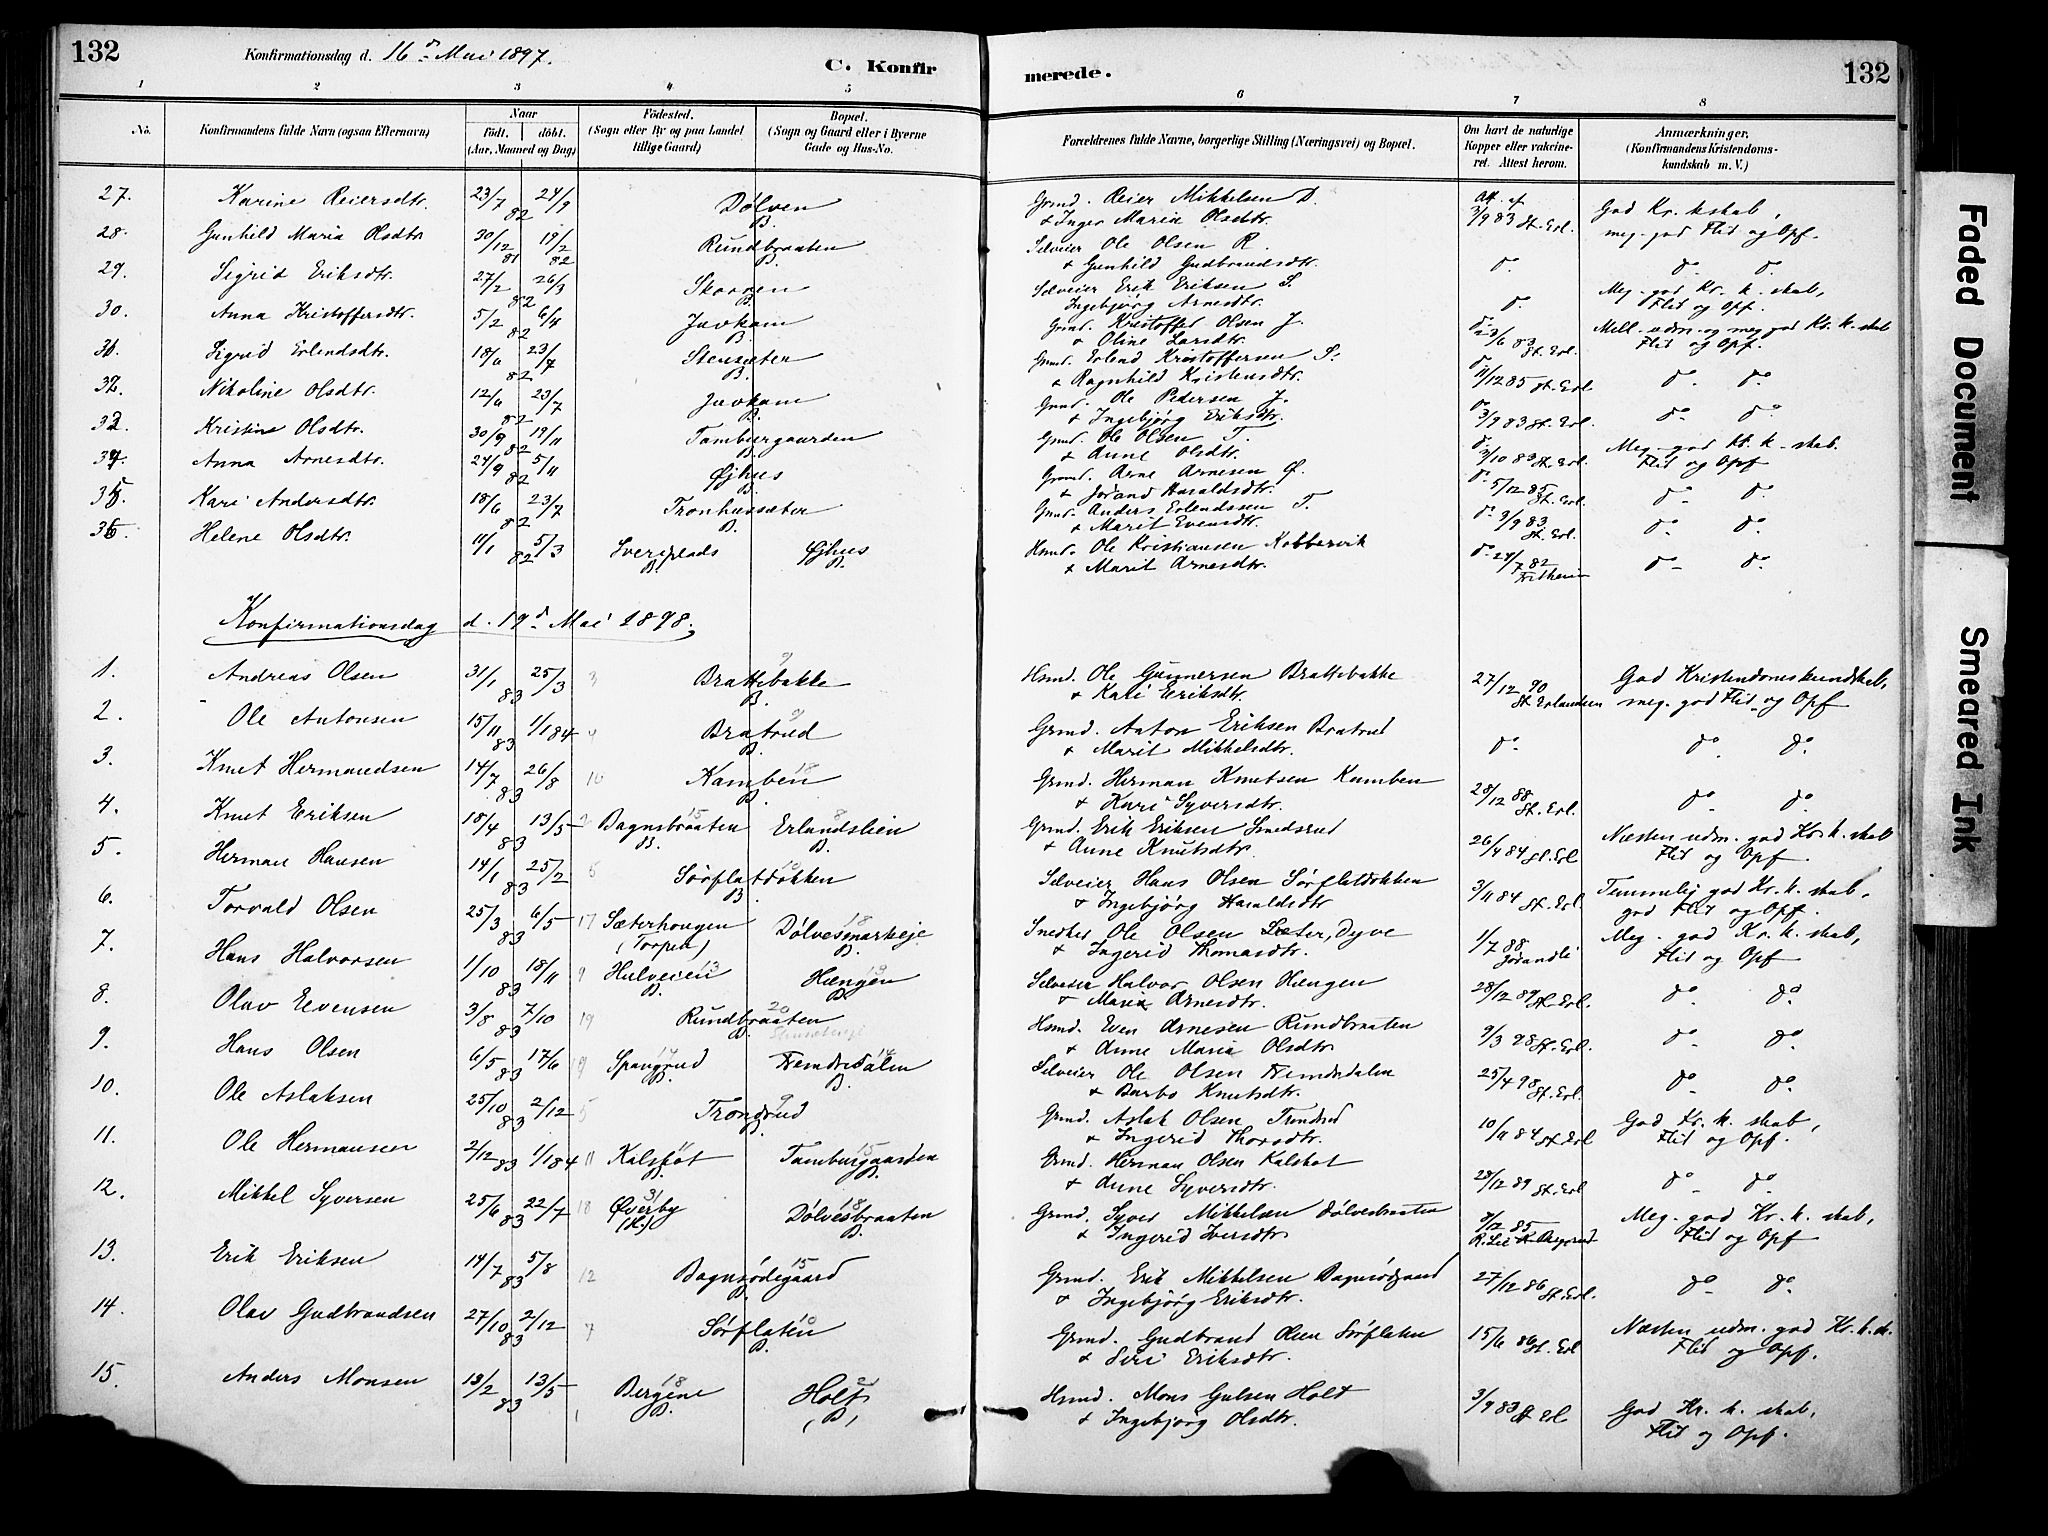 132
Konfirmationsdag d. 16de Mai 1897.
C. Konfir
merede.
132
1 2 3 4 5 6 7 8
No.
Konfirmandens fulde Navn (ogsaa Efternavn)
Naar
født. døbt.
(Aar, Maaned og Dag)
Fødested.
(Sogn eller By og paa Landet
tillige Gaard)
Bopæl.
(Sogn og Gaard eller i Byerne
Gade og Hus-No.
Forældrenes fulde Navne, borgerlige Stilling (Næringsvei) og Bopæl.
Om havt de naturlige
Kopper eller vakcine-
ret. Attest herom.
Anmærkninger.
(Konfirmandens Kristendoms-
kundskab m. V.)
27. Karine Reiersdtr. 23/7 82 24/9 Dølven B. Grmd. Reier Mikkelsen D. Att. af God Kr. kskab,
& Inger Maria Olsdtr. 3/9 83 St. Erl. meg. god Flid og Opf.
28. Gunhild Maria Olsdtr. 30/12 81 19/2 82 Rundbraaten B. Selveier Ole Olsen R.
& Gunhild Gudbrandsdtr. do. do. do.
29. Sigrid Eriksdtr. 27/2 82 26/3 B. Selveier Erik Eriksen S. Meg. god Kr. k. skab,
Ingebjörg Arnesdtr. do. Flid og Opf.
30. Anna Kristoffersdtr. 5/2 82 6/4 Javkam B. Grmd. Kristoffer Olsen J. Mell. udm. og meg god Kr. k. skab
& Oline Larsdtr. St. Erl. Flid og Opf.
31. Sigrid Erlendsdtr. 18/6 82 23/7 Stensæter B. Grmd. Erlend Kristoffersen S. do
& Ragnhild Kristensdtr. 11/12 85 St. Erl do. do.
32. Nikoline Olsdtr. 12/6 82 23/7 Javkam B. Grmd. Ole Pedersen J. do
& Ingebjörg Eriksdtr. 3/9 83 St. Erl. do do
33. Kristine Olsdtr. 30/9 82 19/11 Tamburgaarden B. Grmd. Ole Olsen T. do Meg. god Kr. k. skab.
& Anne Olsdtr. 3/10 83 St. Erl. Flid og Opf
34. Anna Arnesdtr. 24/9 82 5/11 Øjhus B. Grmd. Arne Arnesen Ø. do
& Jørand Haraldsdtr. 5/12 85 St. Erl. do do.
35. Kari Andersdtr. 18/6 82 23/7 Tronhussæter B. Grmd. Anders Erlendssen T. do
& Marit Evensdtr. 3/9 83 St. Erl. do do.
36. Helene Olsdtr. 11/1 82 5/3 B. Øjhus B. Hsmd. Ole Kristiansen Kobbervik do. 24/7 82
& Marit Arnesdtr. do do.
Konfirmationsdag d. 19de Mai 1898.
1. Andreas Olsen 31/1 83 25/3 3 Brattebakke 9 B. Hsmd. Ole Gunnersen Brattebakke 27/12 90 God Kristendomskundskab,
& Kari Eriksdtr. St. Erlandsen meg. god Flid og Opf
2. Ole Antonsen 15/11 83 1/1 84 4 Bratrud 9 B. Grmd. Anton Eriksen Bratrud
& Marit Mikkelsdtr. do. do do.
3. Knut Hermandsen 14/7 83 26/8 16 Kamben 18 B. Grmd. Herman Knutsen Kamben 28/12 88
& Kari Syversdtr. St. Erl. do do.
4. Knut Eriksen 18/4 83 13/5 2 Bagnsbraaten 15 B. Erlandslien 8 B. Grmd. Erik Eriksen Smedsrud Næsten udm. god Kr. k. skab
& Anne Knutsdtr. 26/4 84 St. Erl. Flid og Opf.
5. Herman Hansen 14/1 83 25/2 6 Sørflatdokken 10 B. Selveier Hans Olsen Sørflatdokken Temmelig god Kr. k. skab,
& Ingebjörg Haraldsdtr 3/11 84 St. Erl. god Flid og Opf.
6. Torvald Olsen 25/3 83 6/5 17 Sæterhougen (Torpen) Dølvesmarkeje 18 B. Snedker Ole Olsen Sæter, Dyve 1/7 88 Meg. god Kr. k. skab,
& Ingerid Thomasdtr. Flid og Opf
7. Hans Halvorsen 1/10 83 18/11 9 Hulveien 13 B. Hængen 13 B. Selveier Halvor Olsen Hængen
& Maria Arnesdtr. 28/12 89 St. Erl. do do.
8. Olav Eevensen 3/8 83 7/10 19 Rundbraaten 20 B. Hsmd. Even Arnesen Rundbraaten
& Anne Maria Olsdtr 9/3 98 St. Erl. do do.
9. Hans Olsen 6/5 83 17/6 19 Spangrud 14 B. Fremdedalen 14 B. Selveier Ole Olsen Fremdedalen
& Barbo Knutsdtr. 25/4 98 St. Erl. do do.
10. Ole Aslaksen 25/10 83 2/12 5 Trondrud 9 B. Grmd. Aslak Olsen Trondrud God Kr. k. skab,
& Ingerid Thorsdtr. 10/11 84 St. Erl Flid og Opf.
11. Ole Hermansen 2/12 83 1/1 84 11 Kalskot B. Tamburgaarden 15 B. Grmd. Herman Olsen Kalskot
& Anne Syversdtr. 28/12 89 St. Erl do do.
12. Mikkel Syversen 25/6 83 22/7 18 Øverby Dølvesbraaten 18 B. Grmd. Syver Mikkelsen Dølvesbraaten 8/12 85 Meg. god Kr. k. skab,
& Ingerid Iversdtr Flid og Opf
13. Erik Eriksen 14/7 83 5/8 12 Bagnsødegaard 15 B. Grmd. Erik Mikkelsen Bagnsødegaard
& Ingebjörg Eriksdtr. 27/12 86 St. Erl. do do.
14. Olav Gudbrandsen 27/10 83 2/12 7 Sørflaten 10 B. Grmd. Gudbrand Olsen Sørflaten Næsten udm. god Kr. k. sk.
& Siri Eriksdtr. 15/6 86 St. Erl Flid og Opf.
15. Anders Monsen 13/2 83 13/5 1 Bergene 18 B. Holt (B) Hsmd. Mons Gulsen Holt God Kr. k. skab,
& Ingebjörg Olsdtr. 3/9 83 St Erl Flid og Opf.
Faded Document
Smeared Ink